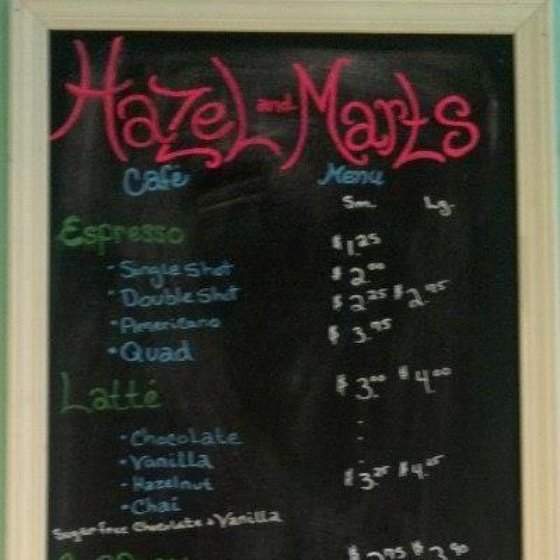 Hazel and Marts
Cafe Menu
Sm. Lg.
Espresso
$1.25
• Single Shot $2.00
• Double Shot $2.25 $2.75
• Americano $3.75
• Quad
Latté $3.00 $4.00
• Chocolate
• Vanilla
• Hazelnut $3.25 $4.25
• Chai
Sugar free Chocolate + Vanilla